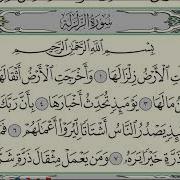 سُورَةُ الزَّلْزَلَةِ
بِسْمِ اللَّهِ الرَّحْمَٰنِ الرَّحِيمِ
الْأَرْضُ زِلْزَالَهَا ١ وَأَخْرَجَتِ الْأَرْضُ أَثْقَالَهَا
مَا لَهَا ٣ يَوْمَئِذٍ تُحَدِّثُ أَخْبَارَهَا ٤ بِأَنَّ رَبَّكَ
يَصْدُرُ النَّاسُ أَشْتَاتًا لِّيُرَوْا أَعْمَالَهُمْ ٦
ذَرَّةٍ خَيْرًا يَرَهُ ٧ وَمَن يَعْمَلْ مِثْقَالَ ذَرَّةٍ